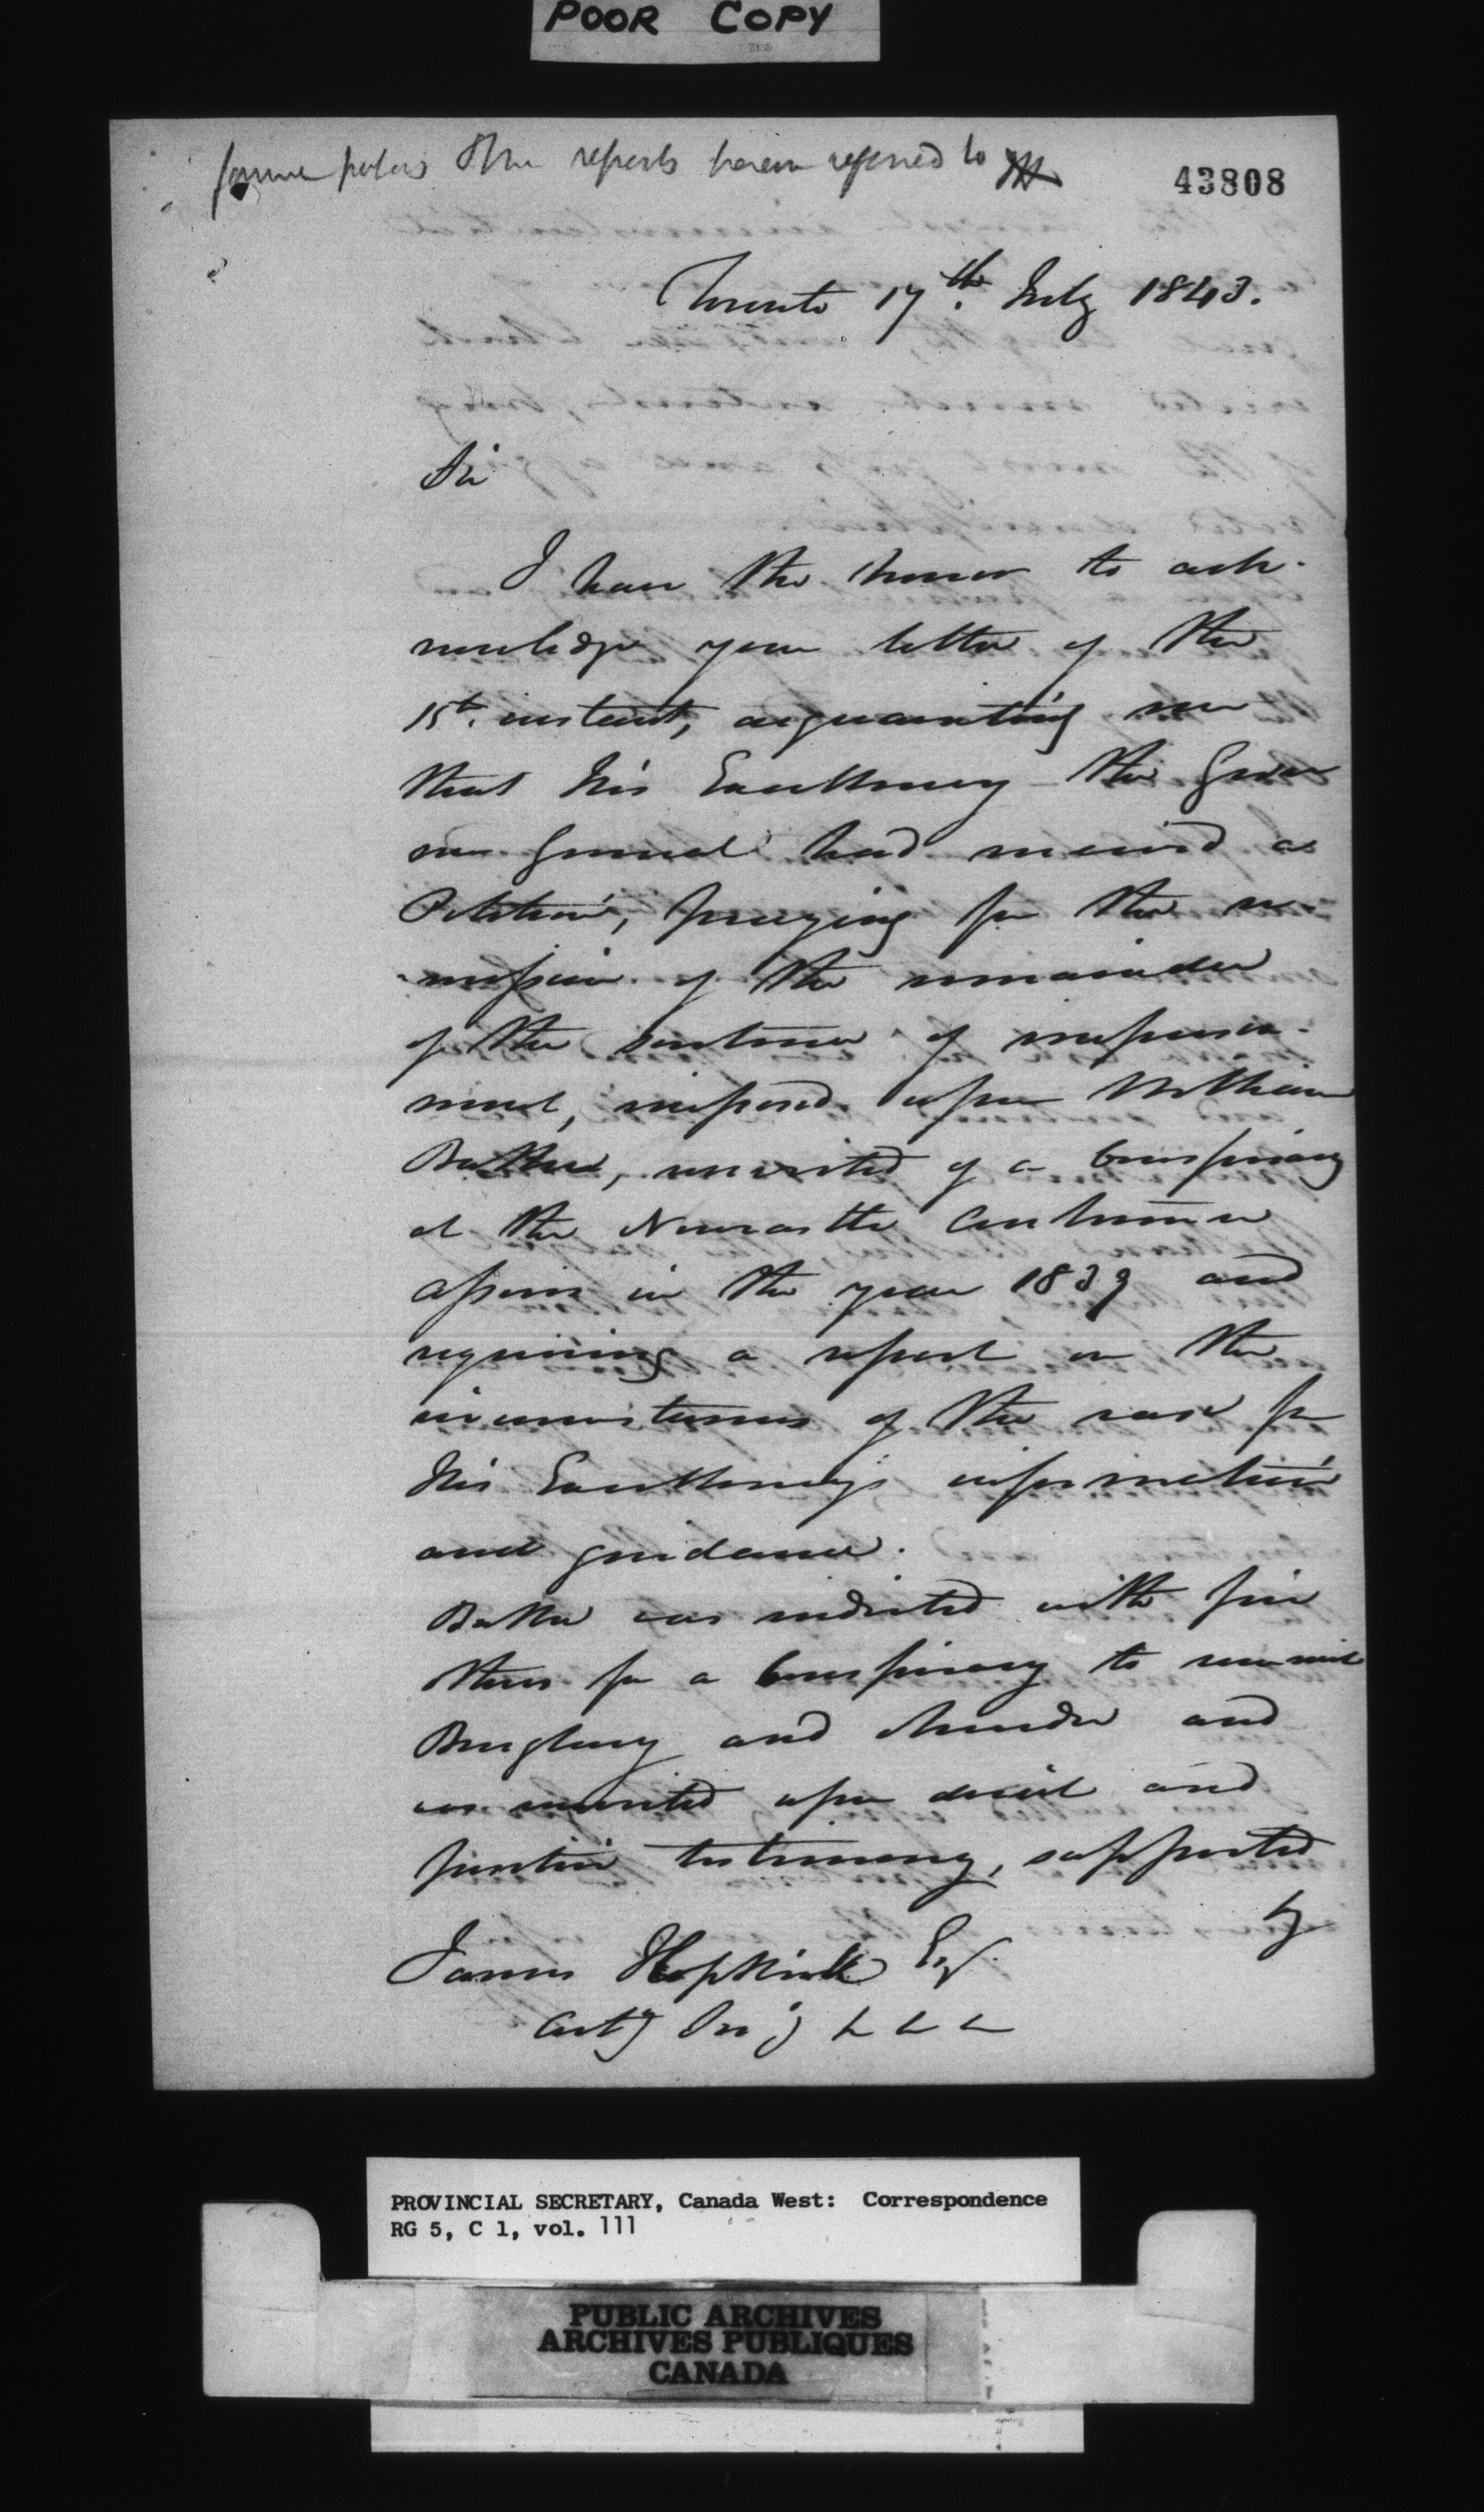 POOR COPY
former papers & the reports herein referred to
43808
Toronto 17th. July 1843.
Sir
I have the honor to ack-
nowledge your letter of the
15th. instant, acquainting me
that His Excellency the Gover
nor General had received a
Petition, praying for the re-
mission of the remainder
of the sentence of imprison-
ment, imposed upon William
Battur, convicted of a Conspiracy
at the Newcastle Autumn
Assizes in the year 1839 and
requiring a report on the
circumstances of the case for
His Excellency's information
and guidance.
was indicted with five
others for a Conspiracy to commit
Burglary and Murder and
was convicted upon direct and
positive testimony, supported
by
James Hopkirk Esq.
PROVINCIAL SECRETARY, Canada West: Correspondence
RG 5, C 1, vol. 111
PUBLIC ARCHIVES
ARCHIVES PUBLIQUES
CANADA